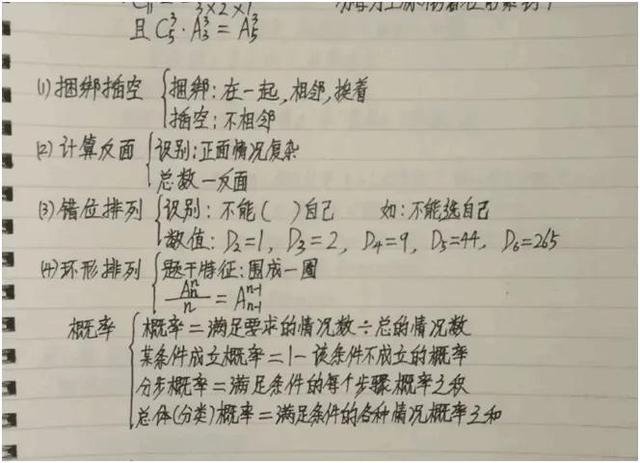 3×2×1
且 C₅³·A₃³ = A₅³
(1) 捆绑插空 捆绑: 在一起, 相邻, 挨着
插空: 不相邻
(2) 计算反面 识别: 正面情况复杂
总数-反面
(3) 错位排列 识别: 不能( )自己 如: 不能选自己
数值: D₂=1, D₃=2, D₄=9, D₅=44, D₆=265
(4) 环形排列 题干特征: 围成一圈
Aₙⁿ/n = Aₙ₋₁ⁿ⁻¹
概率 概率=满足要求的情况数÷总的情况数
某条件成立概率=1-该条件不成立的概率
分步概率=满足条件的每个步骤概率之积
总体(分类)概率=满足条件的各种情况概率之和